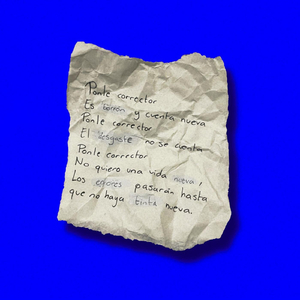 Ponte corrector
Es borrón y cuenta nueva
Ponte corrector
El desgaste no se cuenta
Ponte corrector
No quiero una vida nueva,
Los errores pasarán hasta
que no haya tinta nueva.